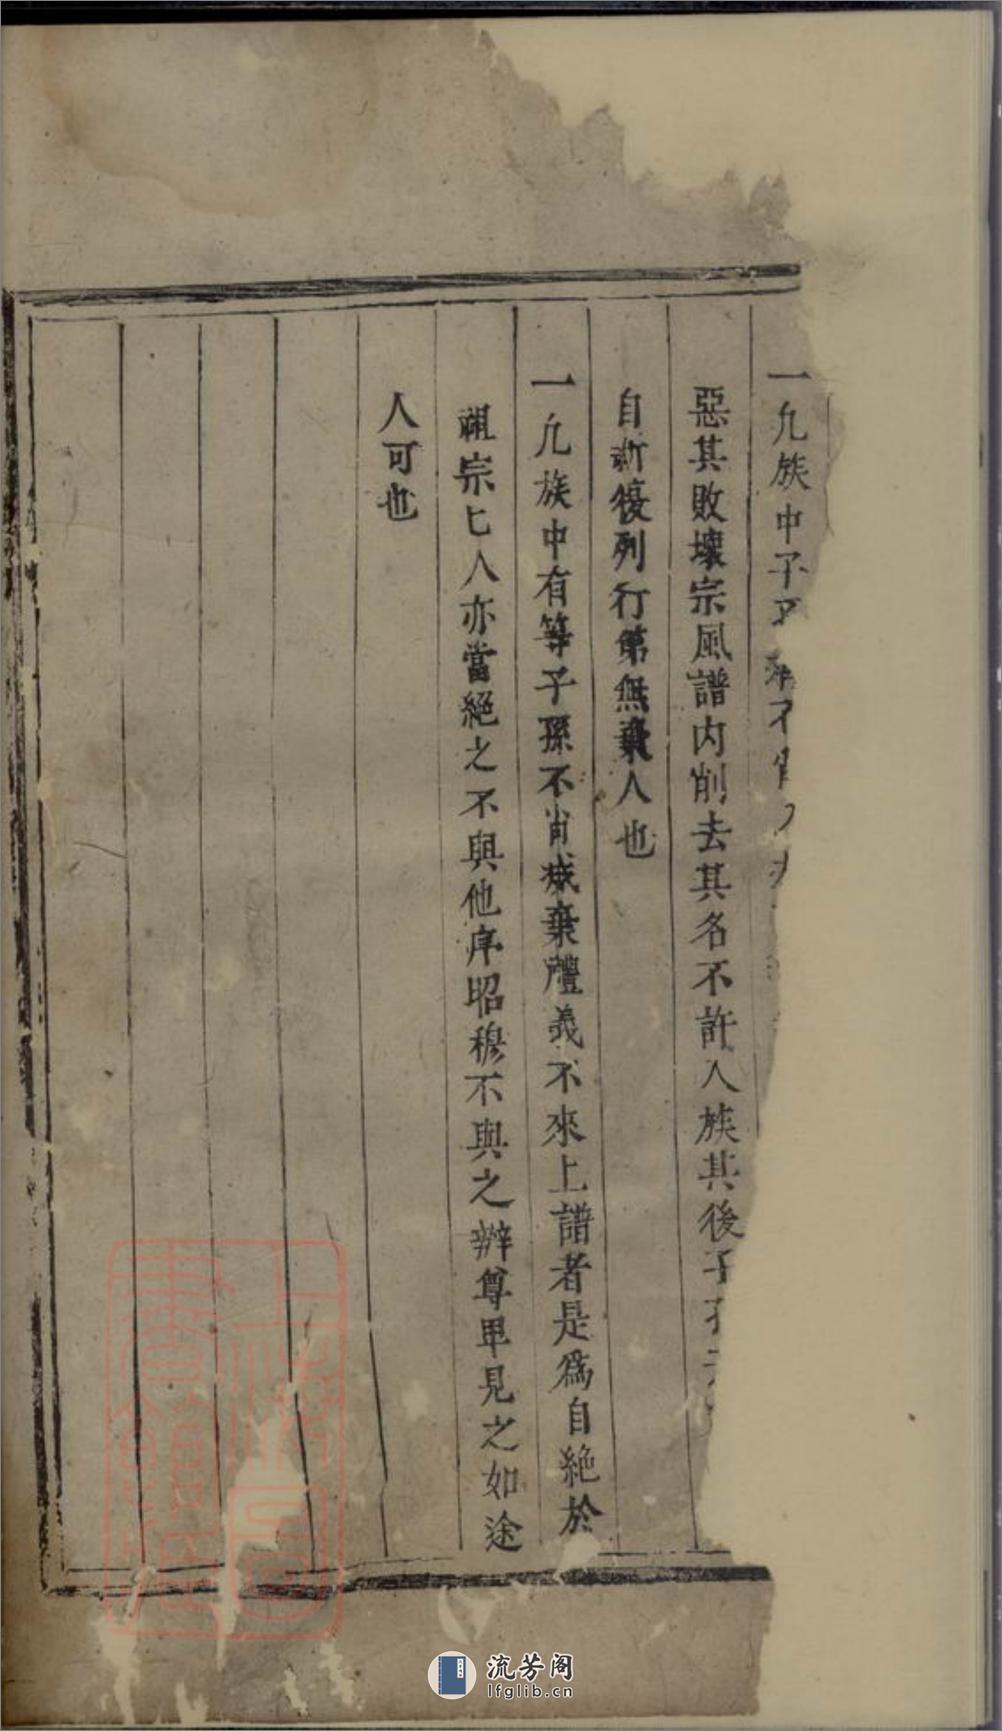 一凡族中子不肖
惡其敗壞宗風譜內削去其名不許入族其後子
自新復列行第無棄人也
一凡族中有等子孫不肖滅棄禮義不來上譜者是爲自絶於
祖宗匕人亦當絕之不與他序昭穆不與之辦尊卑見之如途
人可也
上海圖書館藏
流芳阁
lfglib.cn